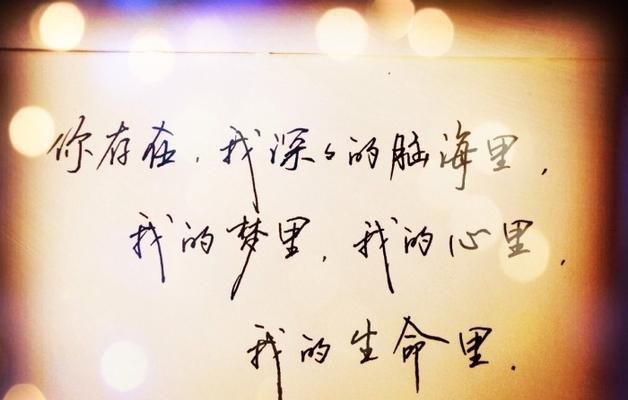 你存在，我深々的脑海里，
我的梦里，我的心里，
我的生命里．